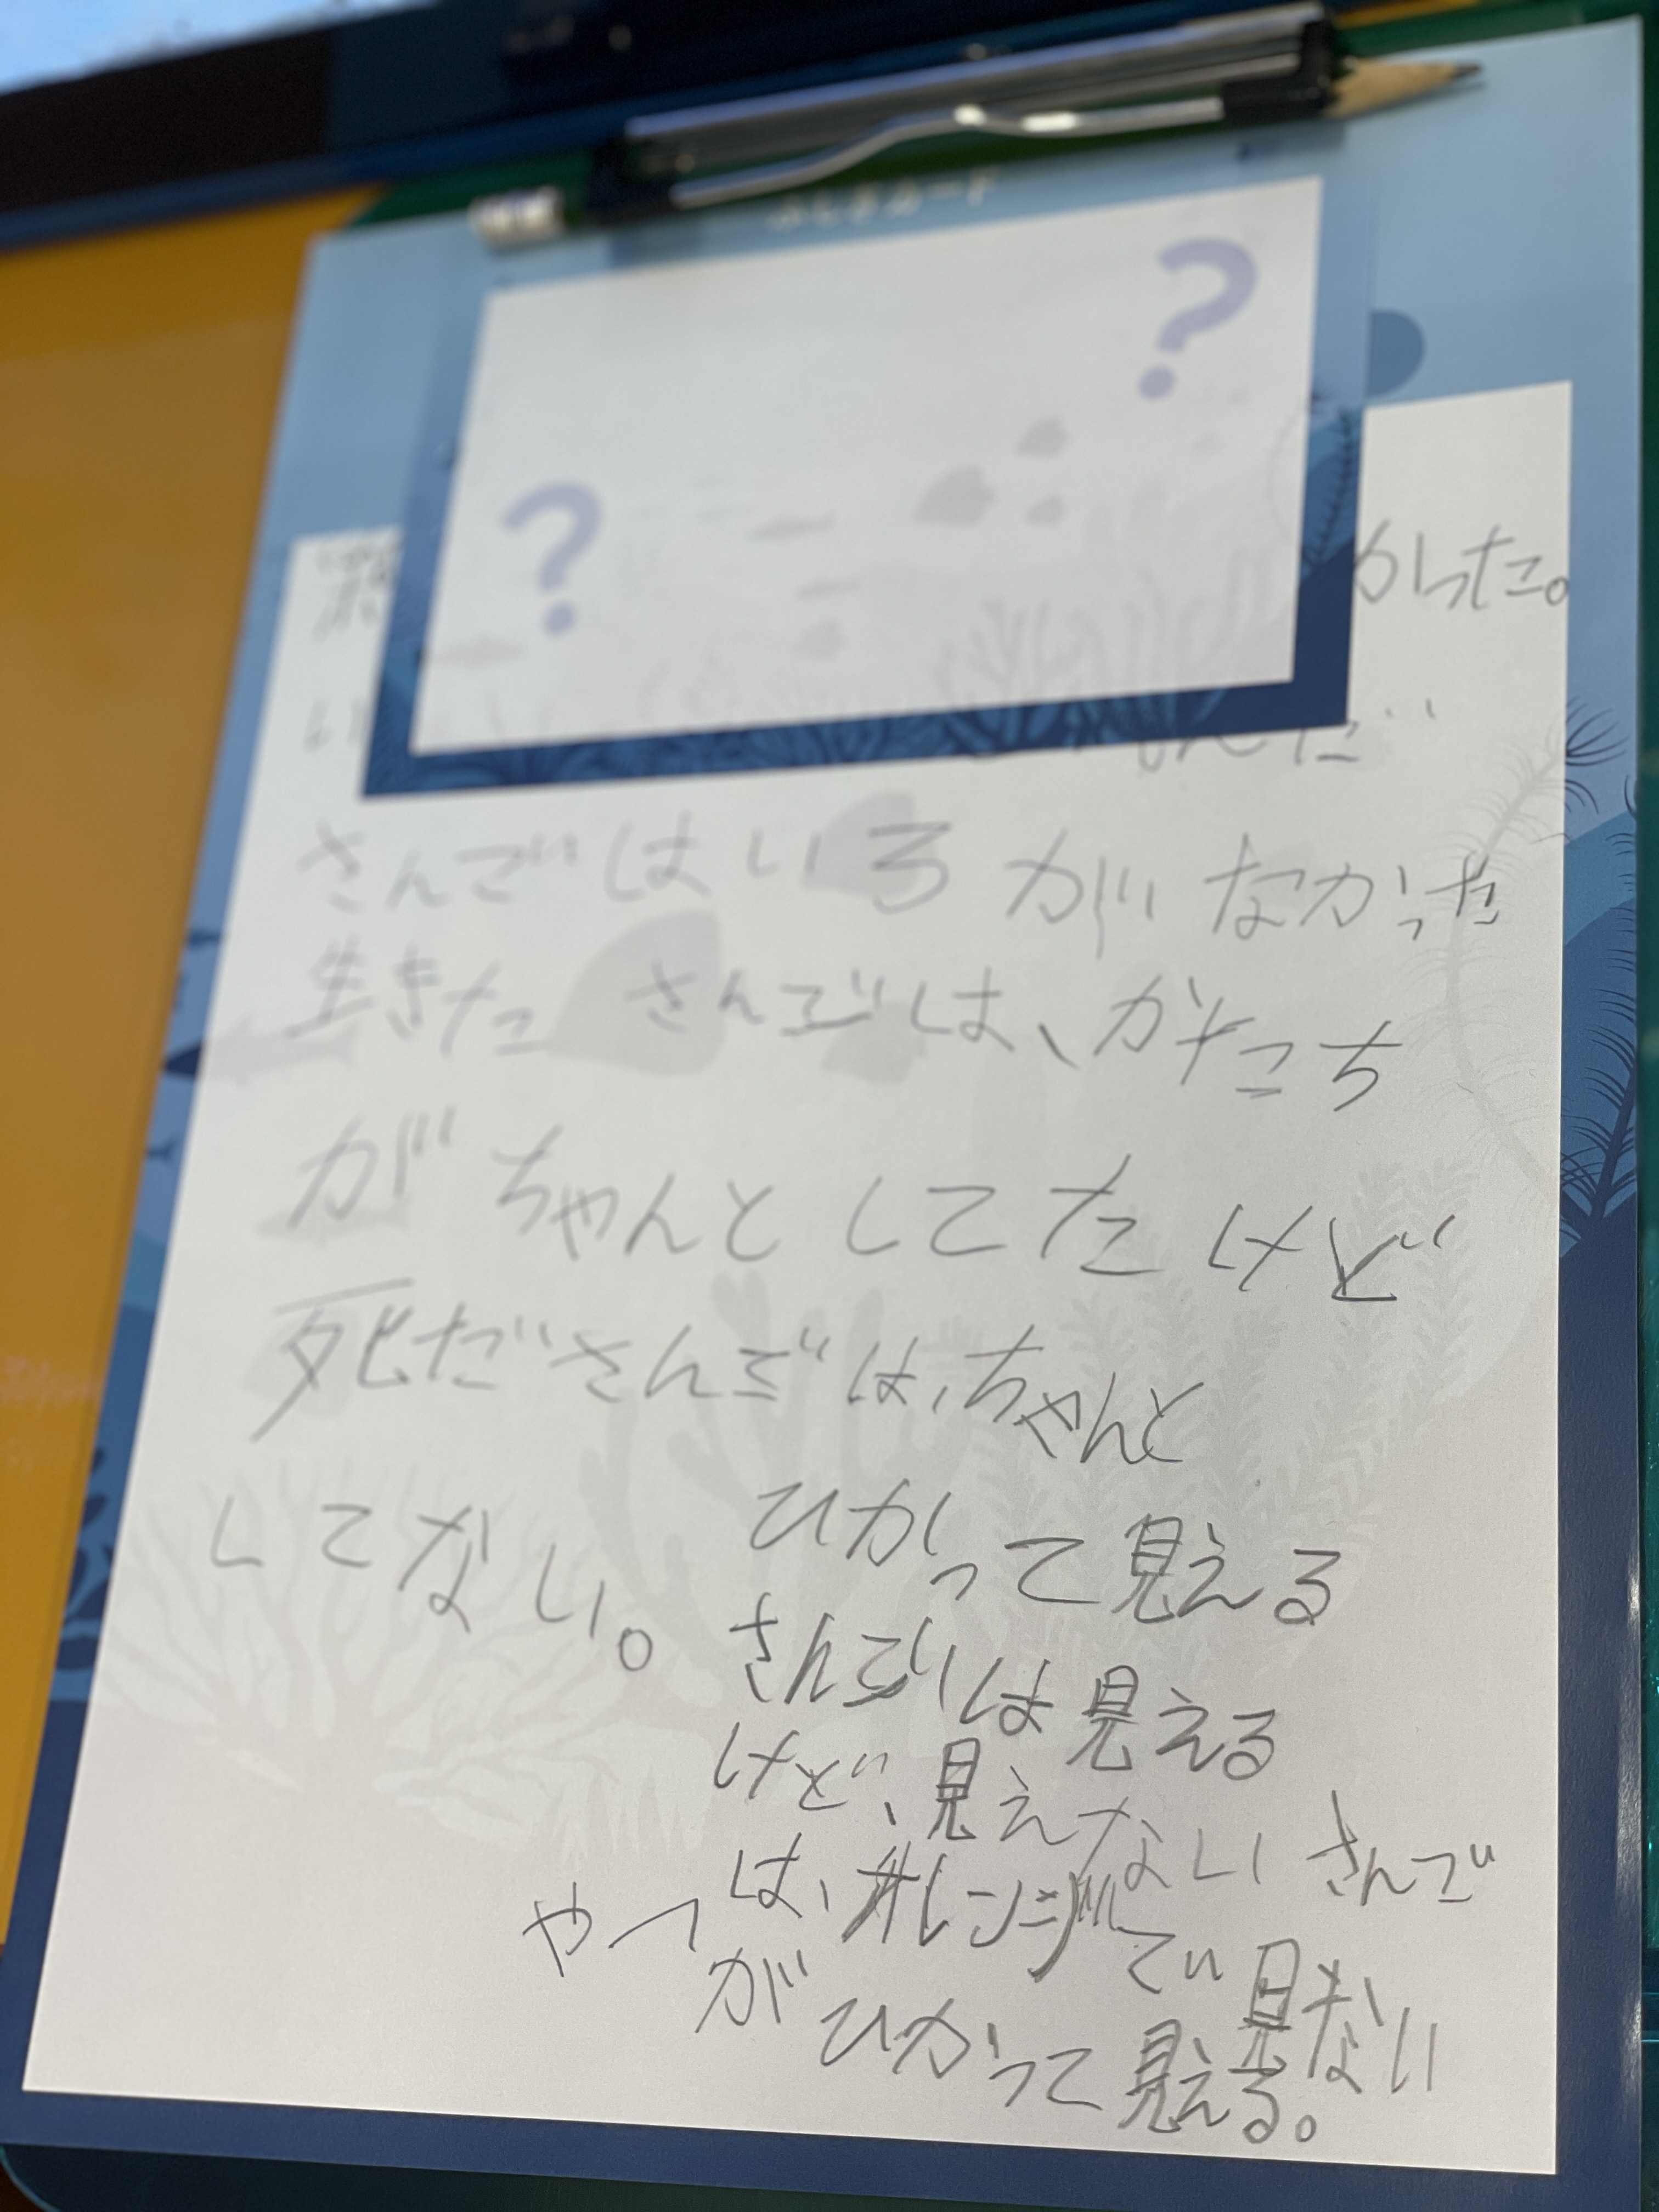 ふしぎカード
かった。
んだ
さんごはいろがなかった
生きたさんごは、かたち
がちゃんとしてたけど
死だざんごは、ちゃんと
してない。
ひかって見える
さんごは見える
けど、見えないさんご
は、オレンジで見ない
やつがひかって見える。